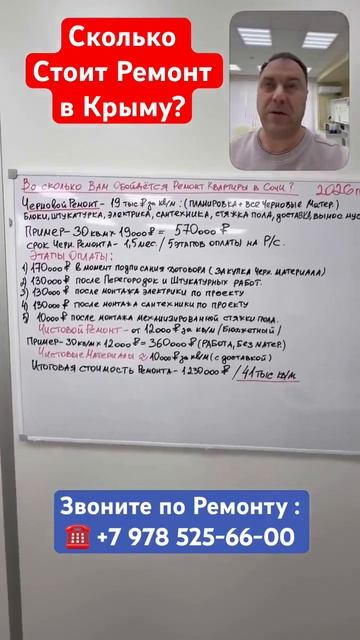 Сколько
Стоит Ремонт
в Крыму?
Во сколько Вам обойдётся Ремонт Квартиры в Сочи? 2026г
Черновой Ремонт - 19 тыс ₽ за кв/м : (планировка + все черновые матер.)
Блоки, штукатурка, электрика, сантехника, стяжка пола, доставка, вынос мус
Пример - 30 кв.м × 19000 ₽ = 570000 ₽
срок черн. Ремонта - 1,5 мес. / 5 этапов оплаты на Р/с.
Этапы Оплаты:
1) 170000 ₽ в момент подписания договора (закупка черн. материала)
2) 130000 ₽ после Перегородок и Штукатурных работ.
3) 130000 ₽ после монтажа электрики по проекту
4) 130000 ₽ после монтажа сантехники по проекту
5) 10000 ₽ после монтажа механизированной стяжки пола.
Чистовой Ремонт - от 12000 ₽ за кв/м (Бюджетный)
Пример - 30 кв/м × 12000 ₽ = 360000 ₽ (Работа, без матер.)
Чистовые Материалы ≈ 10000 ₽ за кв/м (с доставкой)
Итоговая стоимость Ремонта - 1230000 ₽ / 41 тыс кв/м
Звоните по Ремонту :
☎ +7 978 525-66-00